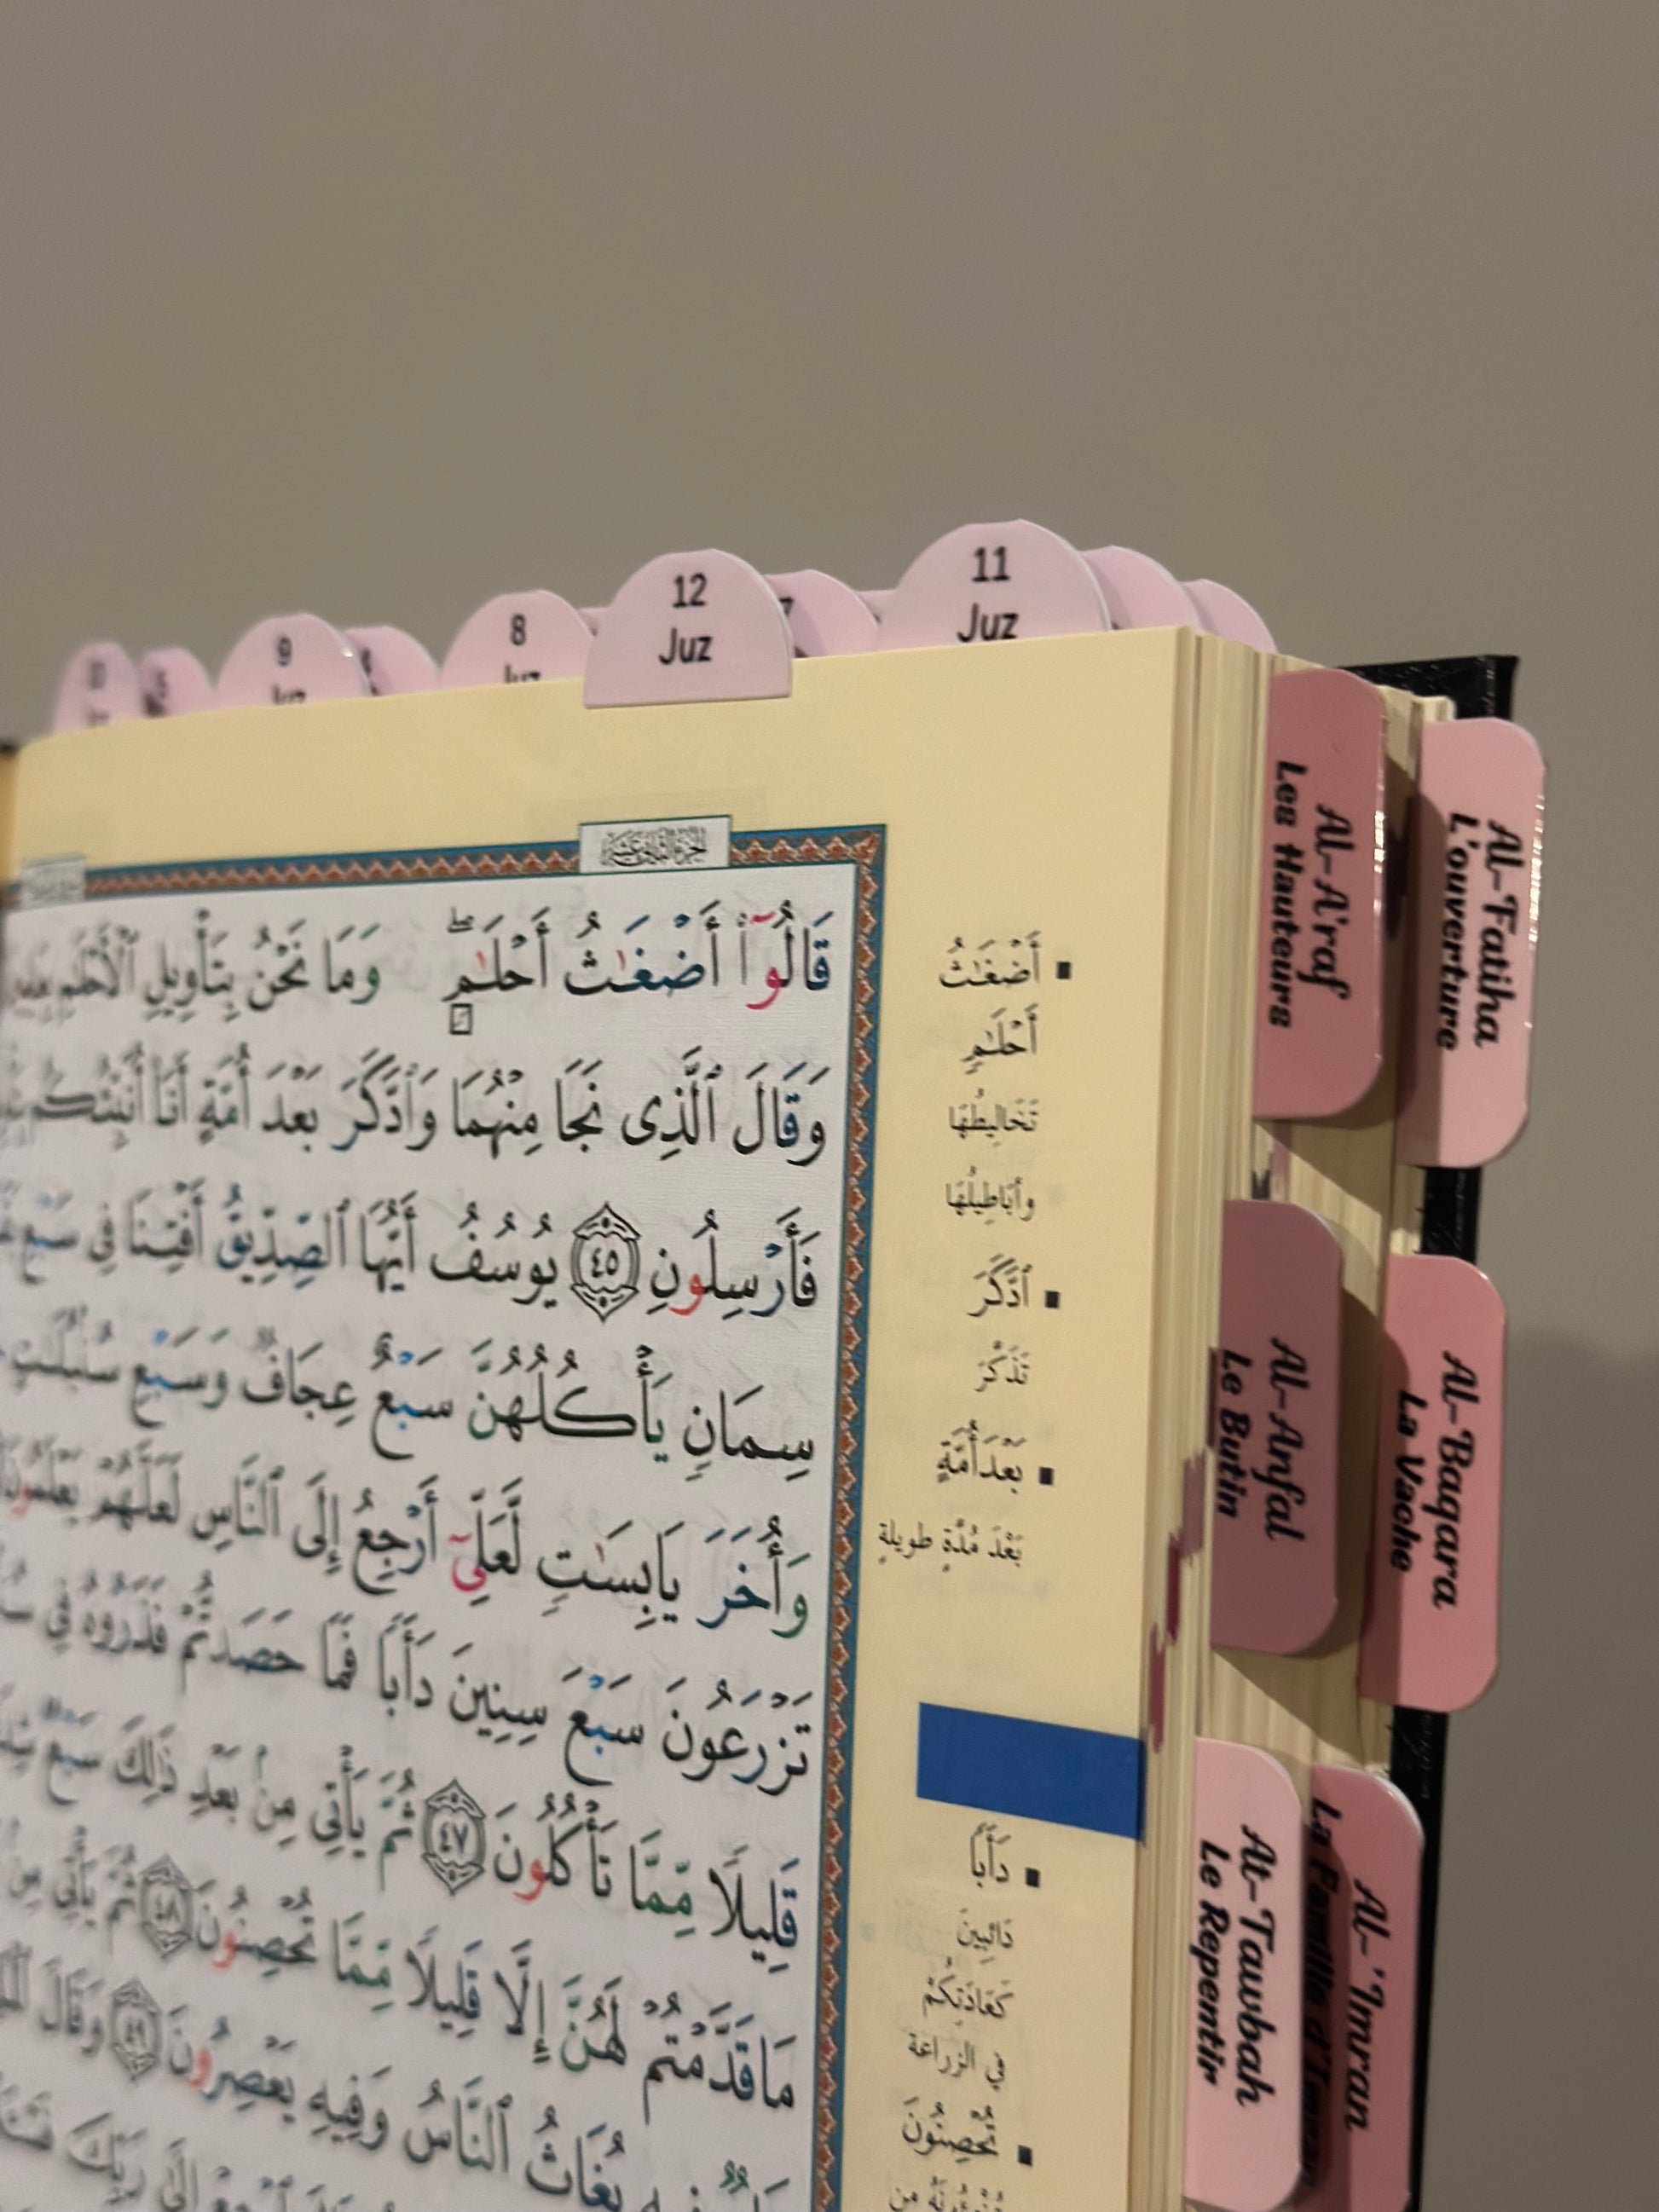 12
Juz
11
Juz
9
8
7
Al-A'raf
Les Hauteurs
Al-Fatiha
L'ouverture
Al-Anfal
Le Butin
Al-Baqara
La Vache
At-Tawbah
Le Repentir
Al-'Imran
La Famille d'Imran
قَالُوٓا۟ أَضْغَـٰثُ أَحْلَـٰمٍ ۖ وَمَا نَحْنُ بِتَأْوِيلِ ٱلْأَحْلَـٰمِ
وَقَالَ ٱلَّذِى نَجَا مِنْهُمَا وَٱدَّكَرَ بَعْدَ أُمَّةٍ أَنَا۠ أُنَبِّئُكُم
فَأَرْسِلُونِ ٤٥ يُوسُفُ أَيُّهَا ٱلصِّدِّيقُ أَفْتِنَا فِى سَبْعِ
سِمَانٍ يَأْكُلُهُنَّ سَبْعٌ عِجَافٌ وَسَبْعِ سُنۢبُلَـٰتٍ
وَأُخَرَ يَابِسَـٰتٍ لَّعَلِّىٓ أَرْجِعُ إِلَى ٱلنَّاسِ لَعَلَّهُمْ يَعْلَمُونَ
تَزْرَعُونَ سَبْعَ سِنِينَ دَأَبًا فَمَا حَصَدتُّمْ فَذَرُوهُ فِى
قَلِيلًا مِّمَّا تَأْكُلُونَ ٤٧ ثُمَّ يَأْتِى مِنۢ بَعْدِ ذَٰلِكَ سَبْعٌ
مَا قَدَّمْتُمْ لَهُنَّ إِلَّا قَلِيلًا مِّمَّا تُحْصِنُونَ ٤٨ ثُمَّ يَأْتِى مِنۢ
يُغَاثُ ٱلنَّاسُ وَفِيهِ يَعْصِرُونَ ٤٩ وَقَالَ
أَضْغَـٰثُ
أَحْلَـٰمٍ
تَخَالِيطُهَا
وأبَاطِيلُهَا
ٱدَّكَرَ
تَذَكَّرَ
بَعْدَ أُمَّةٍ
بَعْدَ مُدَّةٍ طويلةٍ
دَأَبًا
دَائِبِينَ
كَعَادَتِكُمْ
في الزراعة
تُحْصِنُونَ